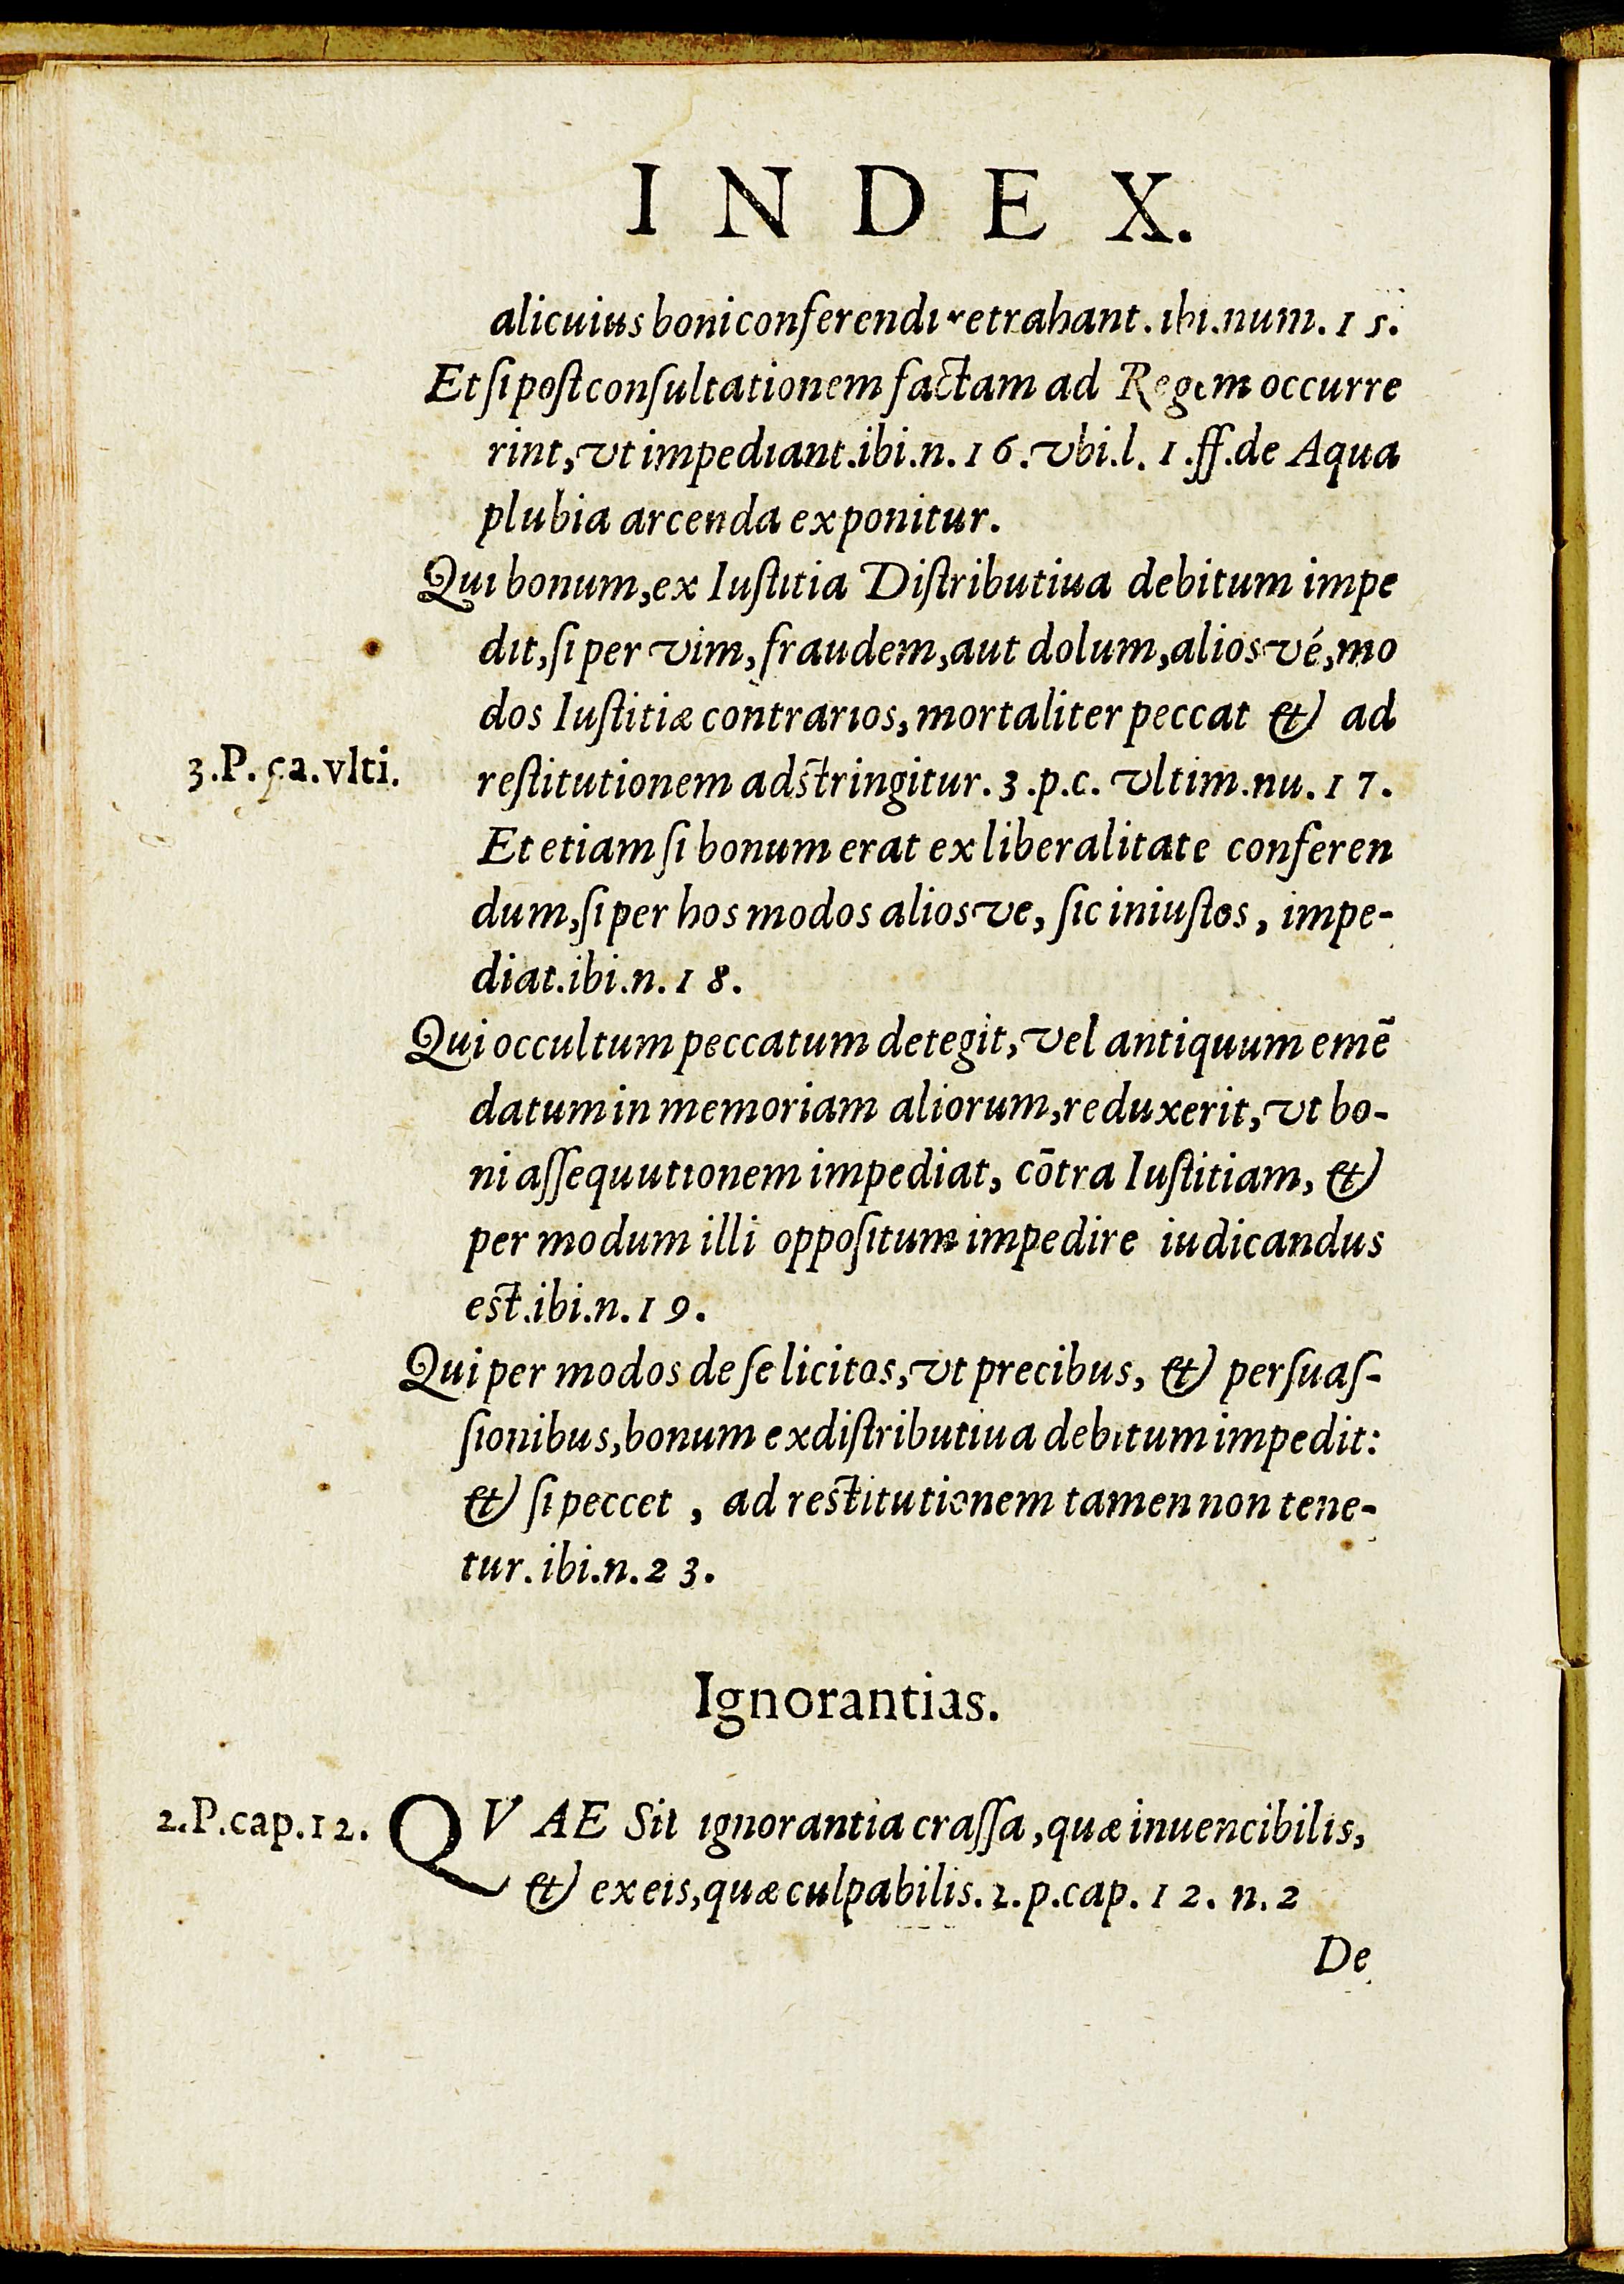 INDEX.
alicuius boni conferendi retrahant. ibi.num. 15.
Et ſi poſt conſultationem factam ad Regem occurre
rint, vt impediant.ibi.n. 16. vbi.l. 1.ff.de Aqua
plubia arcenda exponitur.
Qui bonum, ex Iuſtitia Diſtributiua debitum impe
dit, ſi per vim, fraudem, aut dolum, aliosvé, mo
dos Iuſtitiæ contrarios, mortaliter peccat & ad
3.P. ca.vlti.
reſtitutionem adſtringitur. 3.p.c. vltim.nu. 17.
Et etiam ſi bonum erat ex liberalitate conferen
dum, ſi per hos modos aliosve, ſic iniuſtos, impe-
diat.ibi.n. 18.
Qui occultum peccatum detegit, vel antiquum emē
datum in memoriam aliorum, reduxerit, vt bo-
ni aſſequutionem impediat, cōtra Iuſtitiam, &
per modum illi oppoſitum impedire iudicandus
eſt.ibi.n. 19.
Qui per modos de ſe licitos, vt precibus, & perſuaſ-
ſionibus, bonum ex diſtributiua debitum impedit:
& ſi peccet, ad reſtitutionem tamen non tene-
tur. ibi.n. 23.
Ignorantias.
2.P.cap.12.
QVAE Sit ignorantia craſſa, quæ inuencibilis,
& ex eis, quæ culpabilis. 2.p.cap. 12. n. 2
De